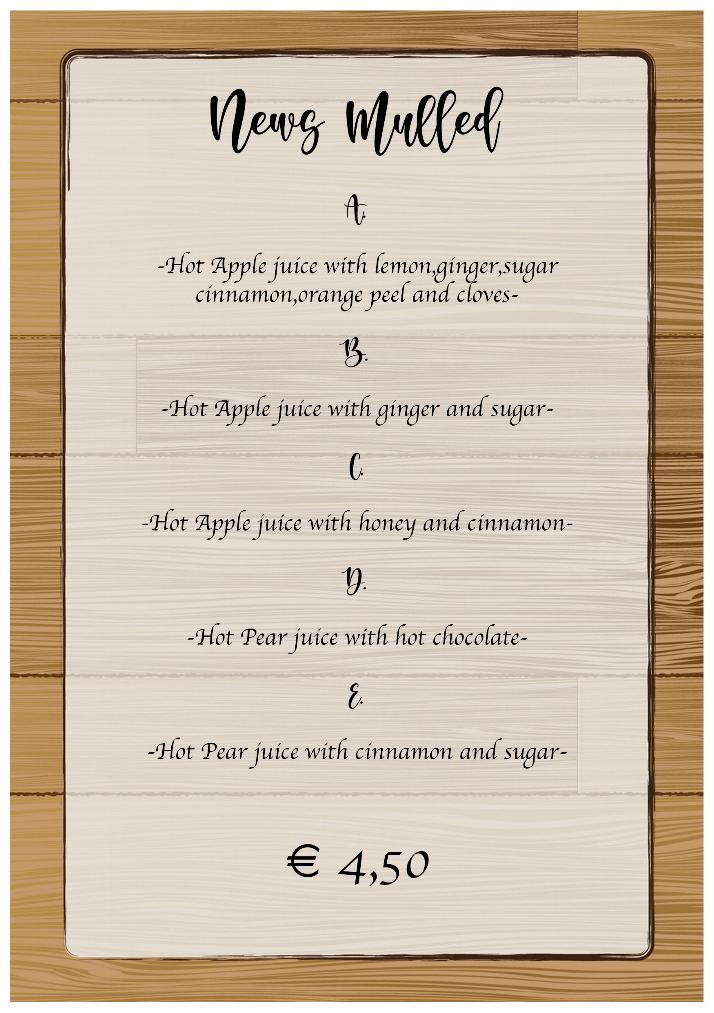 News Mulled
A.
-Hot Apple juice with lemon,ginger,sugar
cinnamon,orange peel and cloves-
B.
-Hot Apple juice with ginger and sugar-
C.
-Hot Apple juice with honey and cinnamon-
D.
-Hot Pear juice with hot chocolate-
E.
-Hot Pear juice with cinnamon and sugar-
€ 4,50